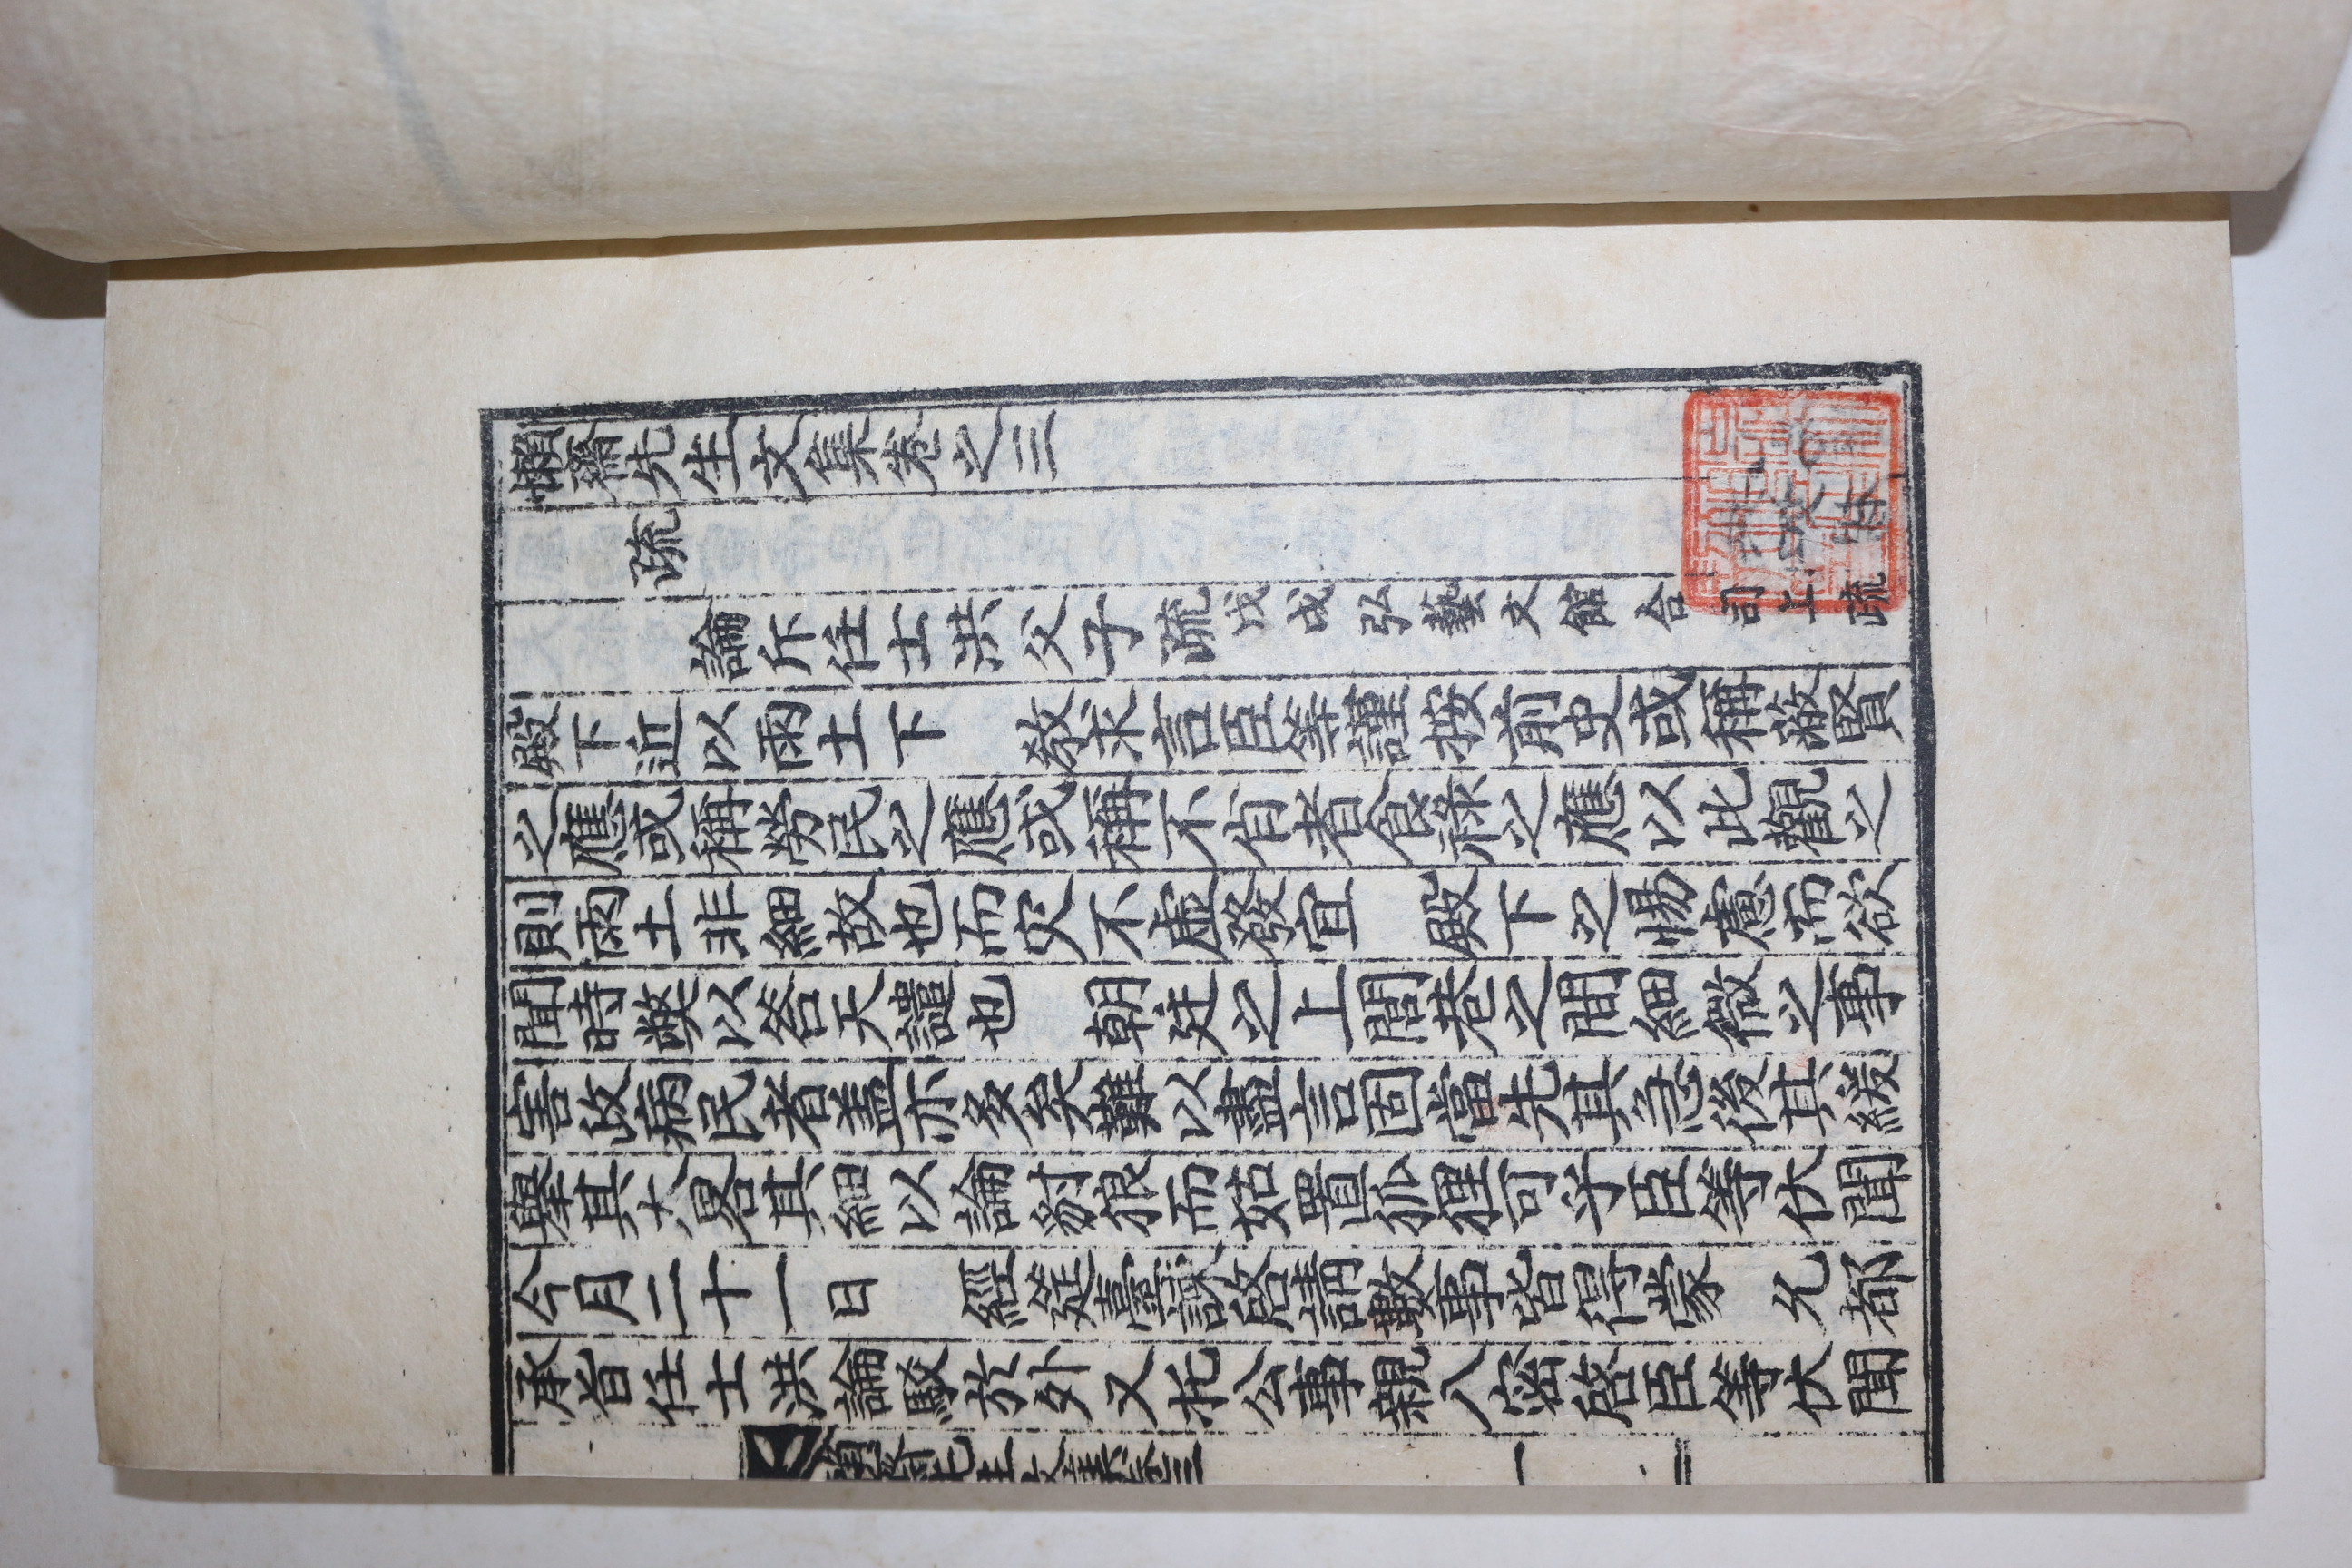 懶齋先生文集卷之三
疏
論斥任士洪父子疏戊戌弘藝文館合司上疏
殿下近以雨土下　敎求言臣等謹按前史或稱蔽賢
之應或稱勞民之應或稱不肖者食祿之應以此觀之
則雨土非細故也而灾不虛發宜　殿下之惕慮而欲
聞時獘以答天譴也　朝廷之上閭巷之間細微之事
害政病民者盖亦多矣難以盡言固當先其急後其緩
擧其大畧其細以論豺狼而姑置狐狸可乎臣等伏聞
今月二十一日　經筵臺諫啓請數事皆得蒙　允都
承旨任士洪論駁於外又托公事親入密啓臣等伏聞
懶齋先生文集卷三
一